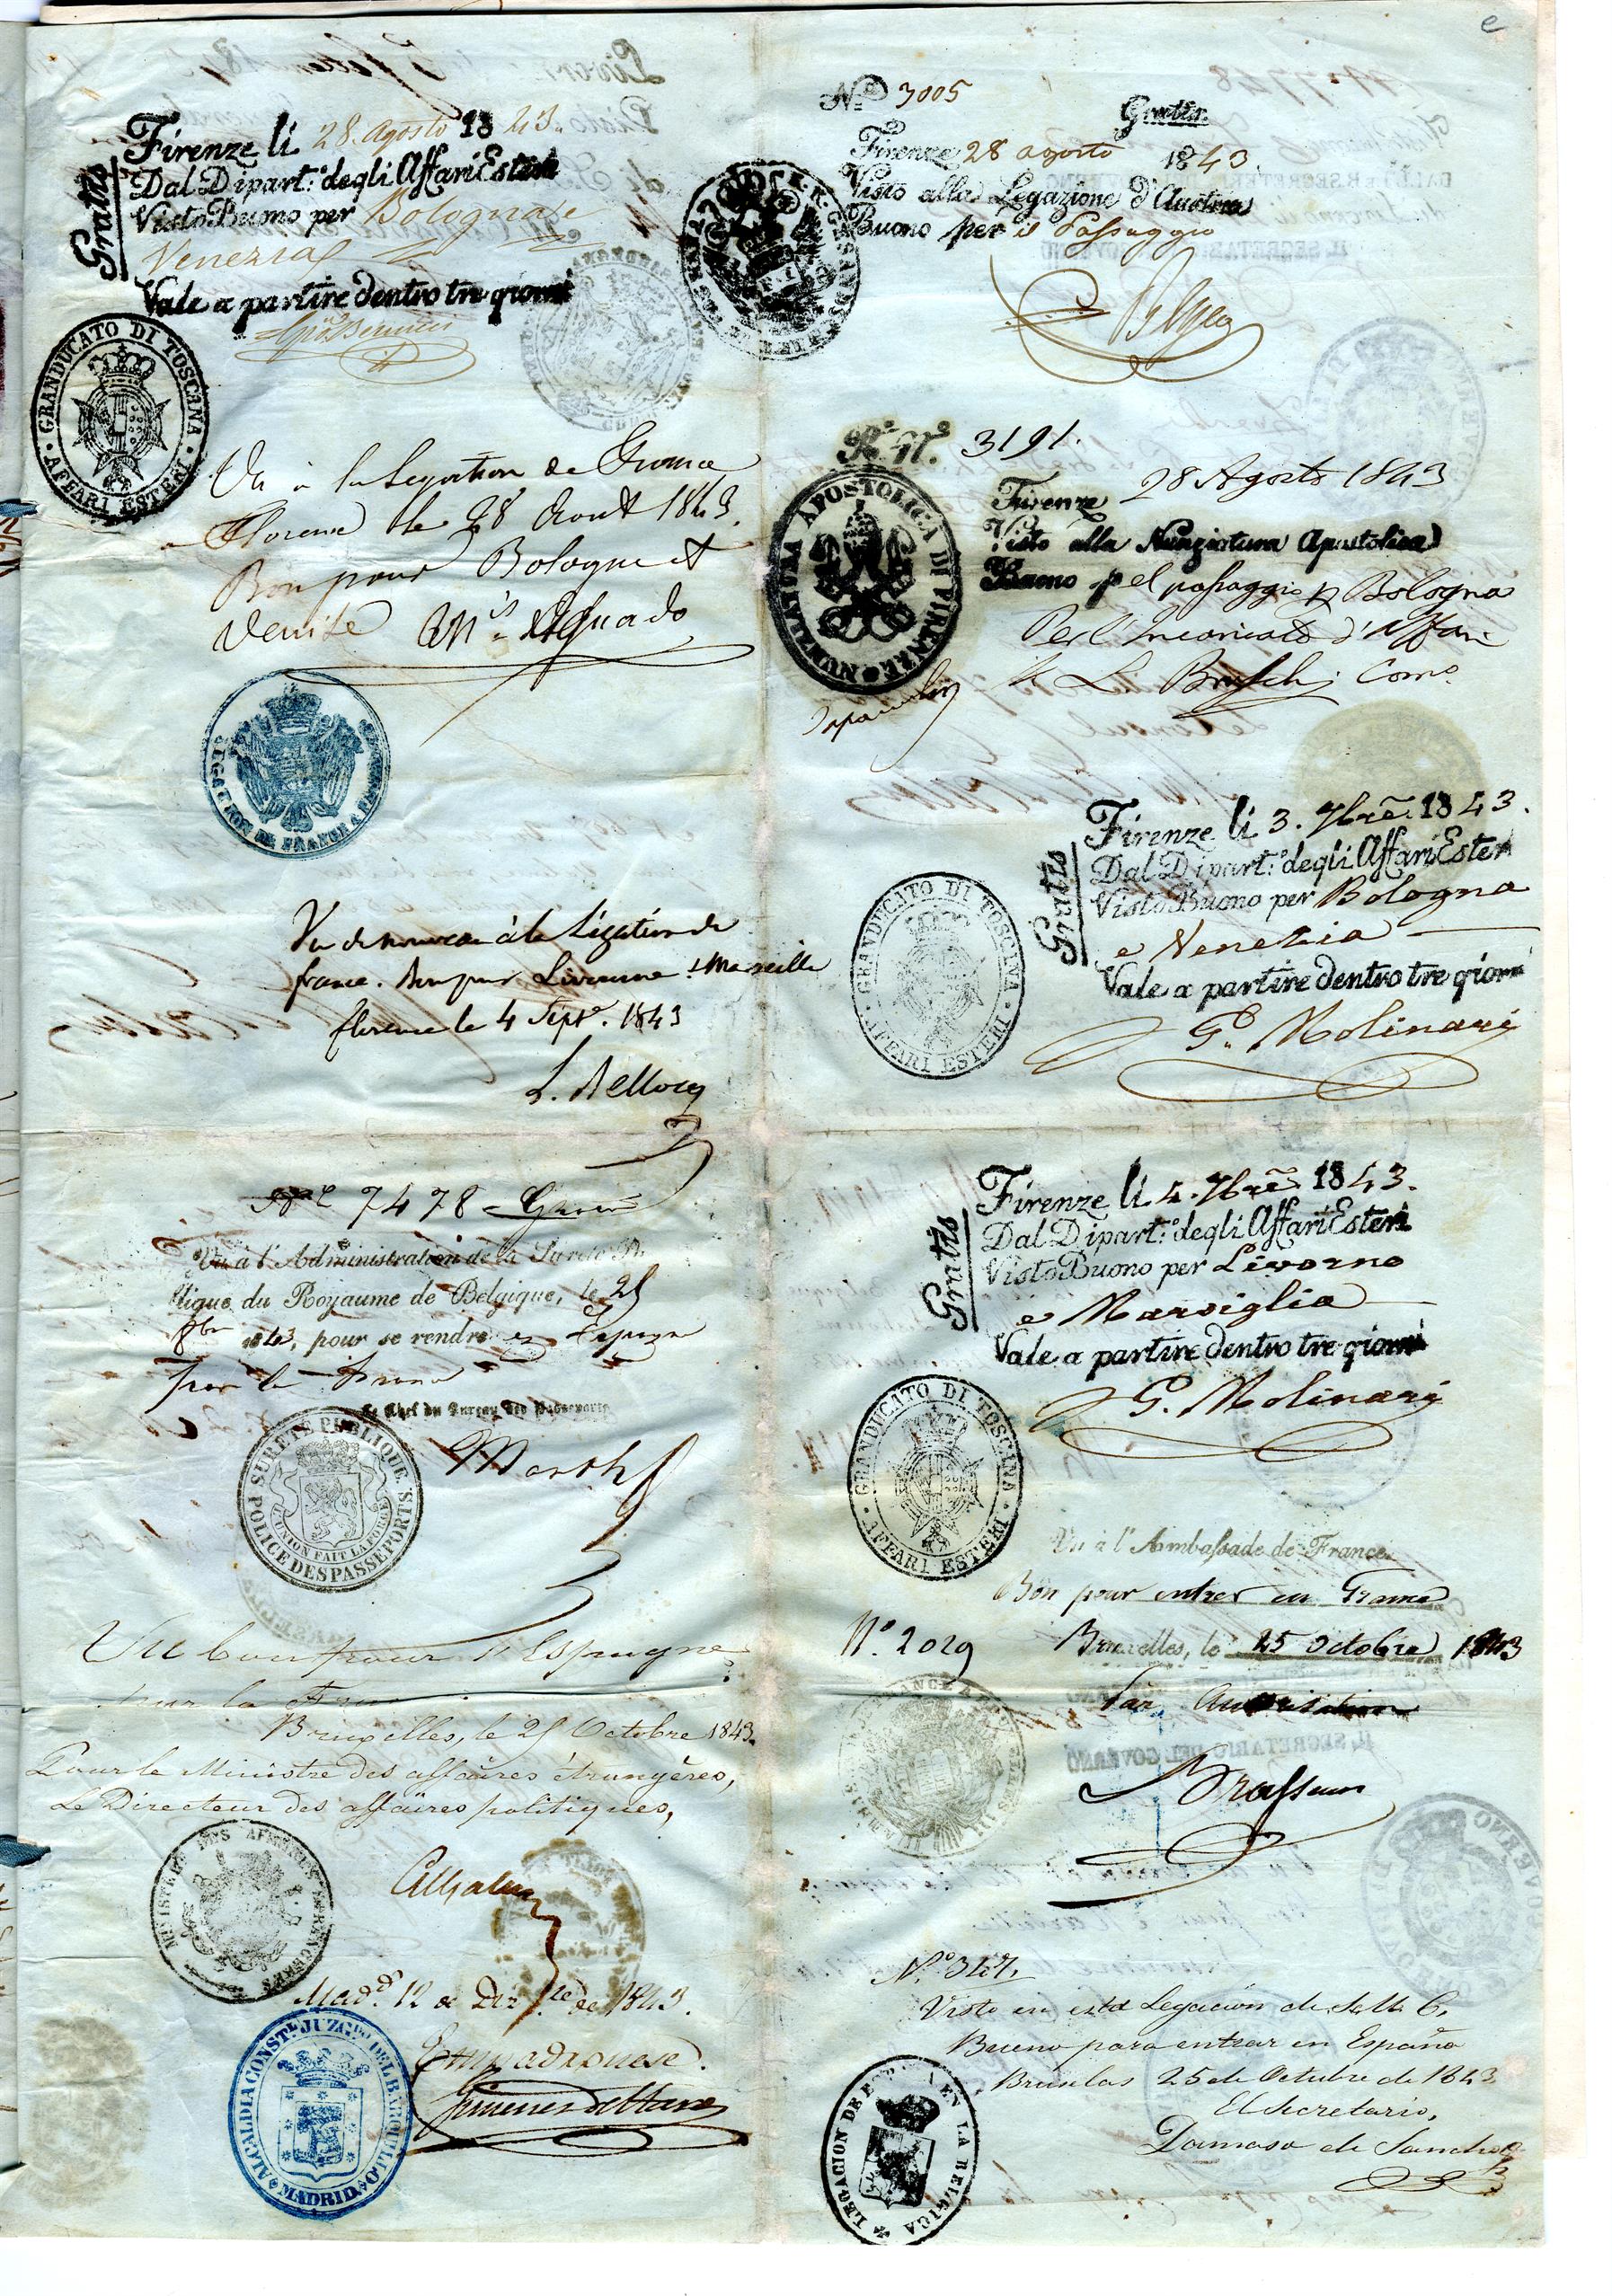 e
Firenze li 28. Agosto 1843.
Dal Dipart.º degli Affari Esteri
Visto Buono per Bologna e
Venezia
Vale a partire dentro tre giorni
Gratis
GRANDUCATO DI TOSCANA
AFFARI ESTERI
Nº 3005
Gratis.
Firenze 28 agosto 1843.
Visto alla Legazione d'Austria
Buono per il Passaggio
Vu à la Legation de France
Florence le 28 Aout 1843.
Bon pour Bologne et
Venise
LEGATION DE FRANCE A FLORENCE
Rº Nº. 3191.
Firenze 28 Agosto 1843
Visto alla Nunziatura Apostolica
Buono pel passaggio p Bologna
Per l'Incaricato d'Affari
NUNZIATURA APOSTOLICA DI FIRENZE
Firenze li 3. 7bre. 1843.
Dal Dipart.º degli Affari Esteri
Visto Buono per Bologna
e Venezia
Vale a partire dentro tre giorni
Gratis
G. Molinari
GRANDUCATO DI TOSCANA
AFFARI ESTERI
Vu de nouveau à la Légation de
france. Bon pour Livourne & Marseille
florence le 4 Sept. 1843
Firenze li 4. 7bre. 1843.
Dal Dipart.º degli Affari Esteri
Visto Buono per Livorno
e Marsiglia
Vale a partire dentro tre giorni
Gratis
G. Molinari
GRANDUCATO DI TOSCANA
AFFARI ESTERI
7478
Vu à l'Administration de la Sureté Pu
blique du Royaume de Belgique, le 25
8bre 1843, pour se rendre en Espagne
par la France
Le Chef du Bureau des Passeports
SURETÉ PUBLIQUE.
POLICE DES PASSEPORTS.
L'UNION FAIT LA FORCE
Vu à l'Ambassade de France.
Bon pour entrer en France
Nº. 2029
Bruxelles, le 25 Octobre 1843
Par Autorisation
Brasseur
Vu bon pour l'Espagne
par la France
Bruxelles, le 25 Octobre 1843.
Pour le Ministre des affaires étrangères,
Le Directeur des affaires politiques,
MINISTERE DES AFFAIRES ETRANGERES
Mad.d 12 de Dizbre de 1843.
Empadronese.
ALCALDIA CONST.L JUZG.DO DEL BARQUILLO
MADRID
Visto en esta Legacion de S. M. C.
Bueno para entrar en España
Bruselas 25 de Octubre de 1843
El Secretario,
LEGACION DE ESPAÑA EN LA BELGICA